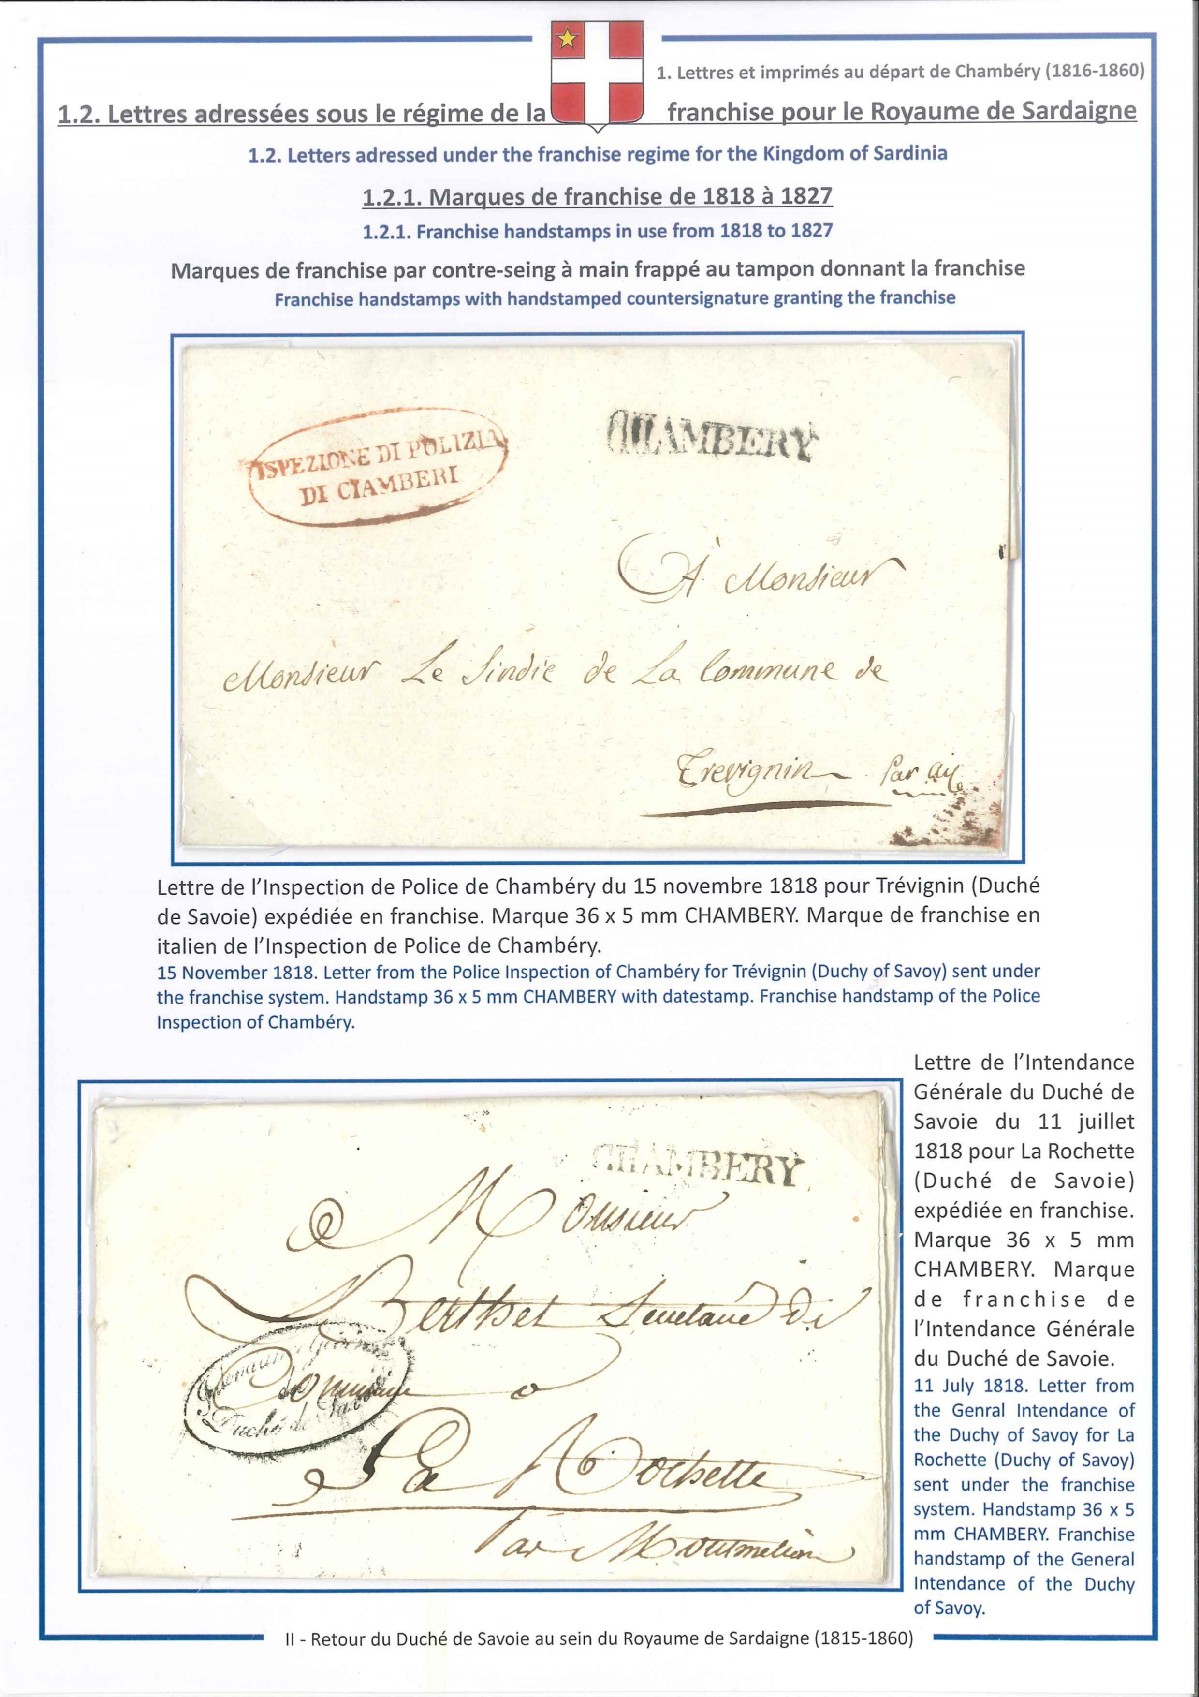 1. Lettres et imprimés au départ de Chambéry (1816-1860)
1.2. Lettres adressées sous le régime de la franchise pour le Royaume de Sardaigne
1.2. Letters adressed under the franchise regime for the Kingdom of Sardinia
1.2.1. Marques de franchise de 1818 à 1827
1.2.1. Franchise handstamps in use from 1818 to 1827
Marques de franchise par contre-seing à main frappé au tampon donnant la franchise
Franchise handstamps with handstamped countersignature granting the franchise
ISPEZIONE DI POLIZIA
DI CIAMBERI
CHAMBERY
À Monsieur
Monsieur Le Sindic de La Commune de
Trevignin Par aix
Lettre de l'Inspection de Police de Chambéry du 15 novembre 1818 pour Trévignin (Duché
de Savoie) expédiée en franchise. Marque 36 x 5 mm CHAMBERY. Marque de franchise en
italien de l'Inspection de Police de Chambéry.
15 November 1818. Letter from the Police Inspection of Chambéry for Trévignin (Duchy of Savoy) sent under
the franchise system. Handstamp 36 x 5 mm CHAMBERY with datestamp. Franchise handstamp of the Police
Inspection of Chambéry.
CHAMBERY
a Monsieur
Berthet Secretaire de
Commune a
La Rochette
Par Montmelian
Duché de Savoie
Lettre de l'Intendance
Générale du Duché de
Savoie du 11 juillet
1818 pour La Rochette
(Duché de Savoie)
expédiée en franchise.
Marque 36 x 5 mm
CHAMBERY. Marque
de franchise de
l'Intendance Générale
du Duché de Savoie.
11 July 1818. Letter from
the Genral Intendance of
the Duchy of Savoy for La
Rochette (Duchy of Savoy)
sent under the franchise
system. Handstamp 36 x 5
mm CHAMBERY. Franchise
handstamp of the General
Intendance of the Duchy
of Savoy.
II - Retour du Duché de Savoie au sein du Royaume de Sardaigne (1815-1860)